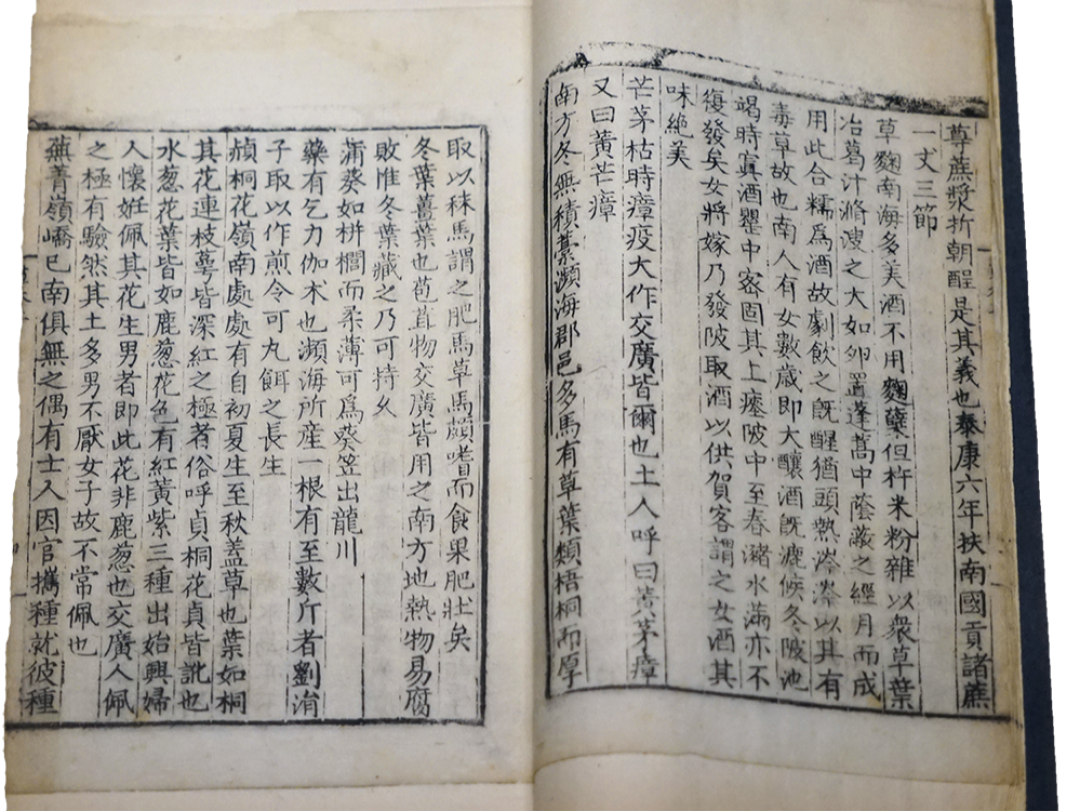 尊蔗漿折朝酲是其義也泰康六年扶南國貢諸蔗
一丈三節
草麴南海多美酒不用麴糵但杵米粉雜以衆草葉
冶葛汁滫溲之大如卵置蓬蒿中蔭蔽之經月而成
用此合糯爲酒故劇飲之旣醒猶頭熱涔涔以其有
毒草故也南人有女數歲即大釀酒旣漉候冬陂池
竭時寘酒罌中密固其上瘞陂中至春瀦水滿亦不
復發矣女將嫁乃發陂取酒以供賀客謂之女酒其
味絶美
芒茅枯時瘴疫大作交廣皆爾也土人呼曰黃茅瘴
又曰黃芒瘴
南方冬無積藁瀕海郡邑多馬有草葉類梧桐而厚
取以秣馬謂之肥馬草馬頗嗜而食果肥壯矣
冬葉薑葉也苞苴物交廣皆用之南方地熱物易腐
敗惟冬葉藏之乃可持久
蒲葵如栟櫚而柔薄可爲葵笠出龍川
藥有乞力伽朮也瀕海所産一根有至數斤者劉涓
子取以作煎令可丸餌之長生
赬桐花嶺南處處有自初夏生至秋盖草也葉如桐
其花連枝萼皆深紅之極者俗呼貞桐花貞皆訛也
水葱花葉皆如鹿葱花色有紅黃紫三種出始興婦
人懷妊佩其花生男者即此花非鹿葱也交廣人佩
之極有驗然其土多男不厭女子故不常佩也
蕪菁嶺嶠已南俱無之偶有士人因官攜種就彼種